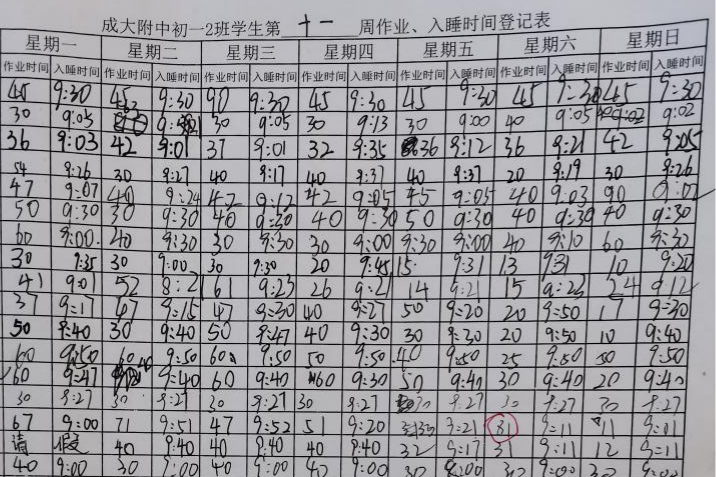 成大附中初一2班学生第十一周作业、入睡时间登记表
星期一 星期二 星期三 星期四 星期五 星期六 星期日
作业时间 入睡时间 作业时间 入睡时间 作业时间 入睡时间 作业时间 入睡时间 作业时间 入睡时间 作业时间 入睡时间 作业时间 入睡时间
45 9:30 45 9:30 90 9:30 45 9:30 45 9:30 45 9:30 45 9:30
30 9:05 30 9:05 30 9:13 30 9:00 40 9:05 9:02
36 9:03 42 9:01 37 9:01 32 9:35 36 9:12 36 9:21 42 9:05
54 9:26 30 9:27 40 9:17 40 9:37 40 9:37 20 9:19 30 9:26
47 9:07 40 9:24 47 9:12 42 9:05 45 9:05 40 9:03 90 9:07
50 9:30 30 9:30 40 9:30 40 9:30 50 9:30 40 9:30 40 9:30
60 9:00 40 9:30 30 9:30 30 9:00 9:30 9:00 40 9:10 60 9:30
30 9:35 30 9:00 30 9:30 20 9:45 15 9:31 13 9:31 10 9:20
41 9:01 52 8:21 61 9:23 26 9:21 14 9:21 15 9:23 24 9:12
37 9:17 47 9:15 47 9:30 40 9:27 50 9:20 20 9:50 17 9:30
50 9:40 30 9:40 50 9:47 40 9:30 30 9:30 20 9:50 10 9:40
60 9:50 60 9:50 60 9:50 50 9:50 40 9:50 25 9:50 9:50
60 9:47 9:40 60 9:40 60 9:30 50 9:40 30 9:40 20 9:40
30 9:27 30 9:27 30 9:27 30 9:27 30 9:27 30 9:27 30 9:27
67 9:00 71 9:51 47 9:52 51 9:20 9:21 31 9:11 11 9:01
请 假 40 9:40 40 9:40 40 9:40 32 9:17 31 9:11 12 9:11
40 9:00 30 9:00 40 9:00 40 9:00 30 9:00 30 9:00 30 9:00